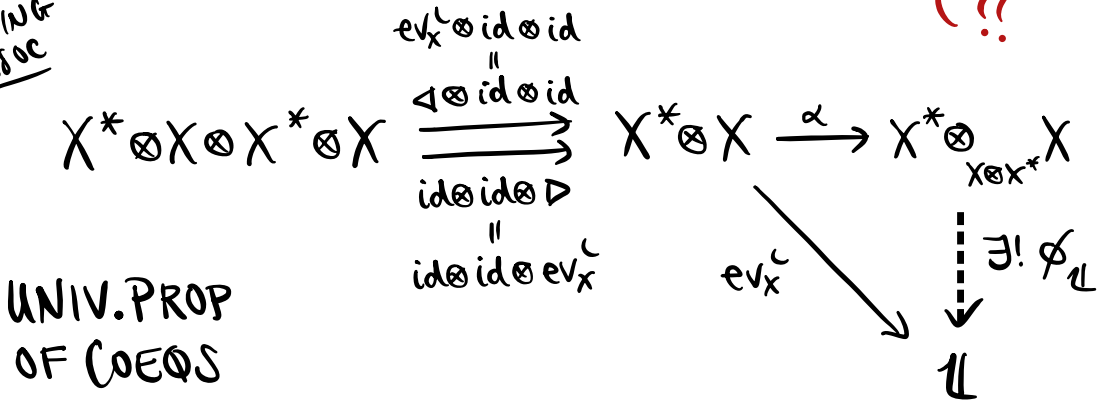 ING
SOC
( ??
ev_X^L ⊗ id ⊗ id
=
◁ ⊗ id ⊗ id
X* ⊗ X ⊗ X* ⊗ X ⇉ X* ⊗ X →^α X* ⊗_{X⊗X*} X
id ⊗ id ⊗ ▷
=
id ⊗ id ⊗ ev_X^L
ev_X^L
∃! ϕ_𝟙
UNIV. PROP
OF COEQS
𝟙